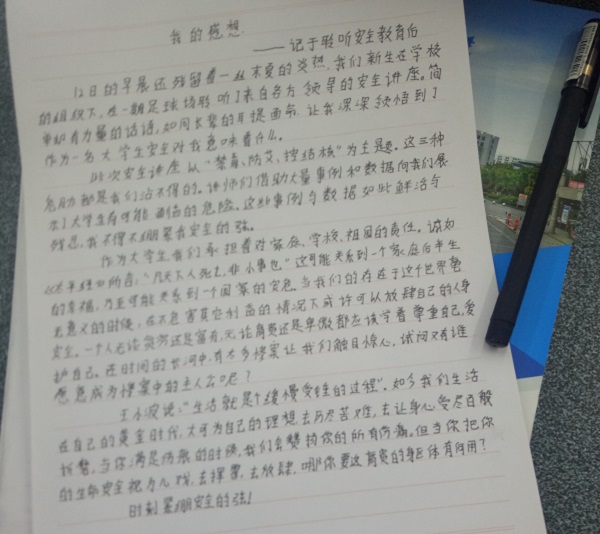 我的感想
——记于聆听安全教育后
12日的早晨还残留着一丝末夏的炎热，我们新生在学校
的组织下，在一期足球场聆听了来自各方领导的安全讲座。简
单却有力量的话语，如同长辈的耳提面命，让我深深领悟到了
作为一名大学生安全对我意味着什么。
此次安全讲座以“禁毒、防艾、控结核”为主题。这三种
危胁都是我们沾不得的。讲师们借助大量事例和数据向我们展
示了大学生有可能面临的危险。这些事例与数据如此鲜活与
残忍，我不得不绷紧我安全的弦。
作为大学生，我们承担着对家庭、学校、祖国的责任。诚如
《太平经》所言：“凡天下人死亡，非小事也”这可能关系到一个家庭后半生
的幸福，乃至可能关系到一个国家的安危。当我们的存在于这个世界势
必意义的时候，在不危害其它利益的情况下或许可以放肆自己的人身
安全。一个人无论贫穷还是富有，无论高贵还是卑微都应该学着尊重自己，爱
护自己。历时间的长河中，有太多惨案让我们触目惊心，试问又有谁
愿意成为惨案中的主人公呢？
王小波说：“生活就是个缓慢受锤的过程”。如今我们生活
在自己的黄金时代，大可为自己的理想去历尽苦难，去让身心受尽百般
折磨，当你满是伤痕的时候，我们会赞扬你的所有伤痛。但当你把你
的生命安全视为儿戏，去挥霍，去放肆，哪你要这高贵的躯体有何用？
时刻紧绷安全的弦！